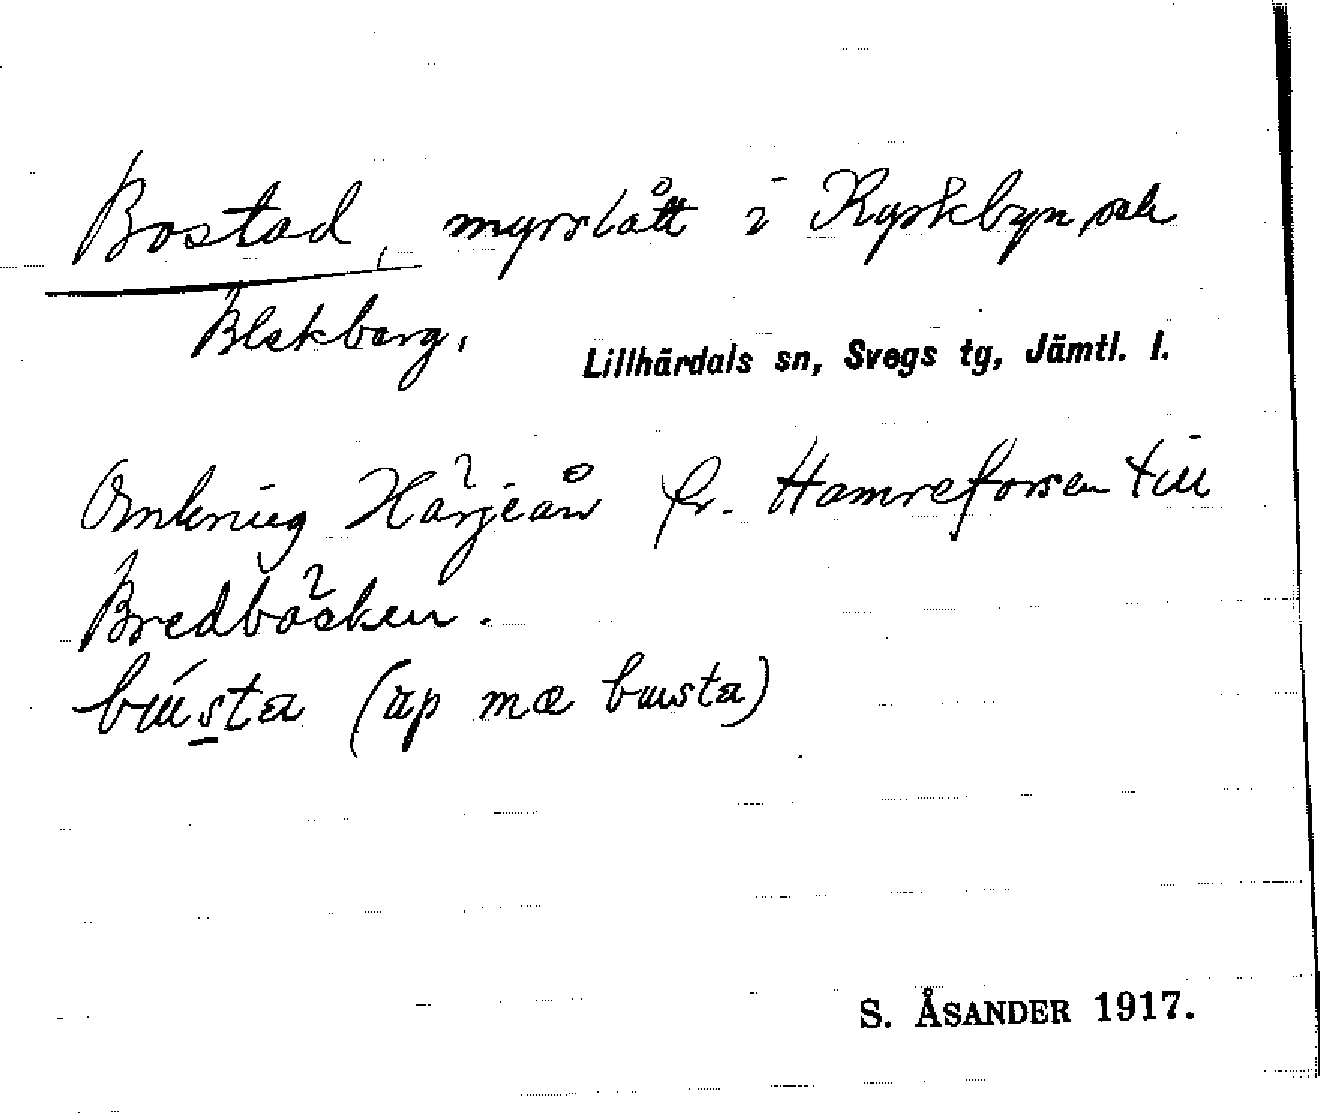 Bostad, myrslått i Kyrkbyn och
Blekberg,
Lillhärdals sn, Svegs tg, Jämtl. l.
Omkring Härjeån fr. Hamreforsen till
Bredbäcken.
bústa (up mæ busta)
S. ÅSANDER 1917.